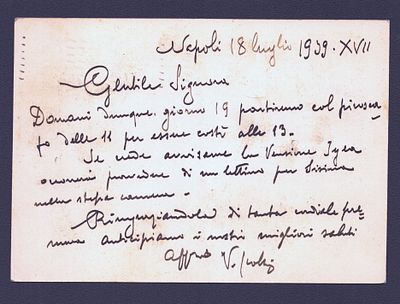 Napoli 18 luglio 1939 - XVII
Gentile Signora
Domani dunque, giorno 19 partiremo col pirosca-
fo delle 11 per essere costì alle 13.
Se crede avvisarne la Pensione Igea
occorrerà provvedere di un lettino per
nella stessa camera -
Ringraziandola di tanta cordiale pre-
mura anticipiamo i nostri migliori saluti